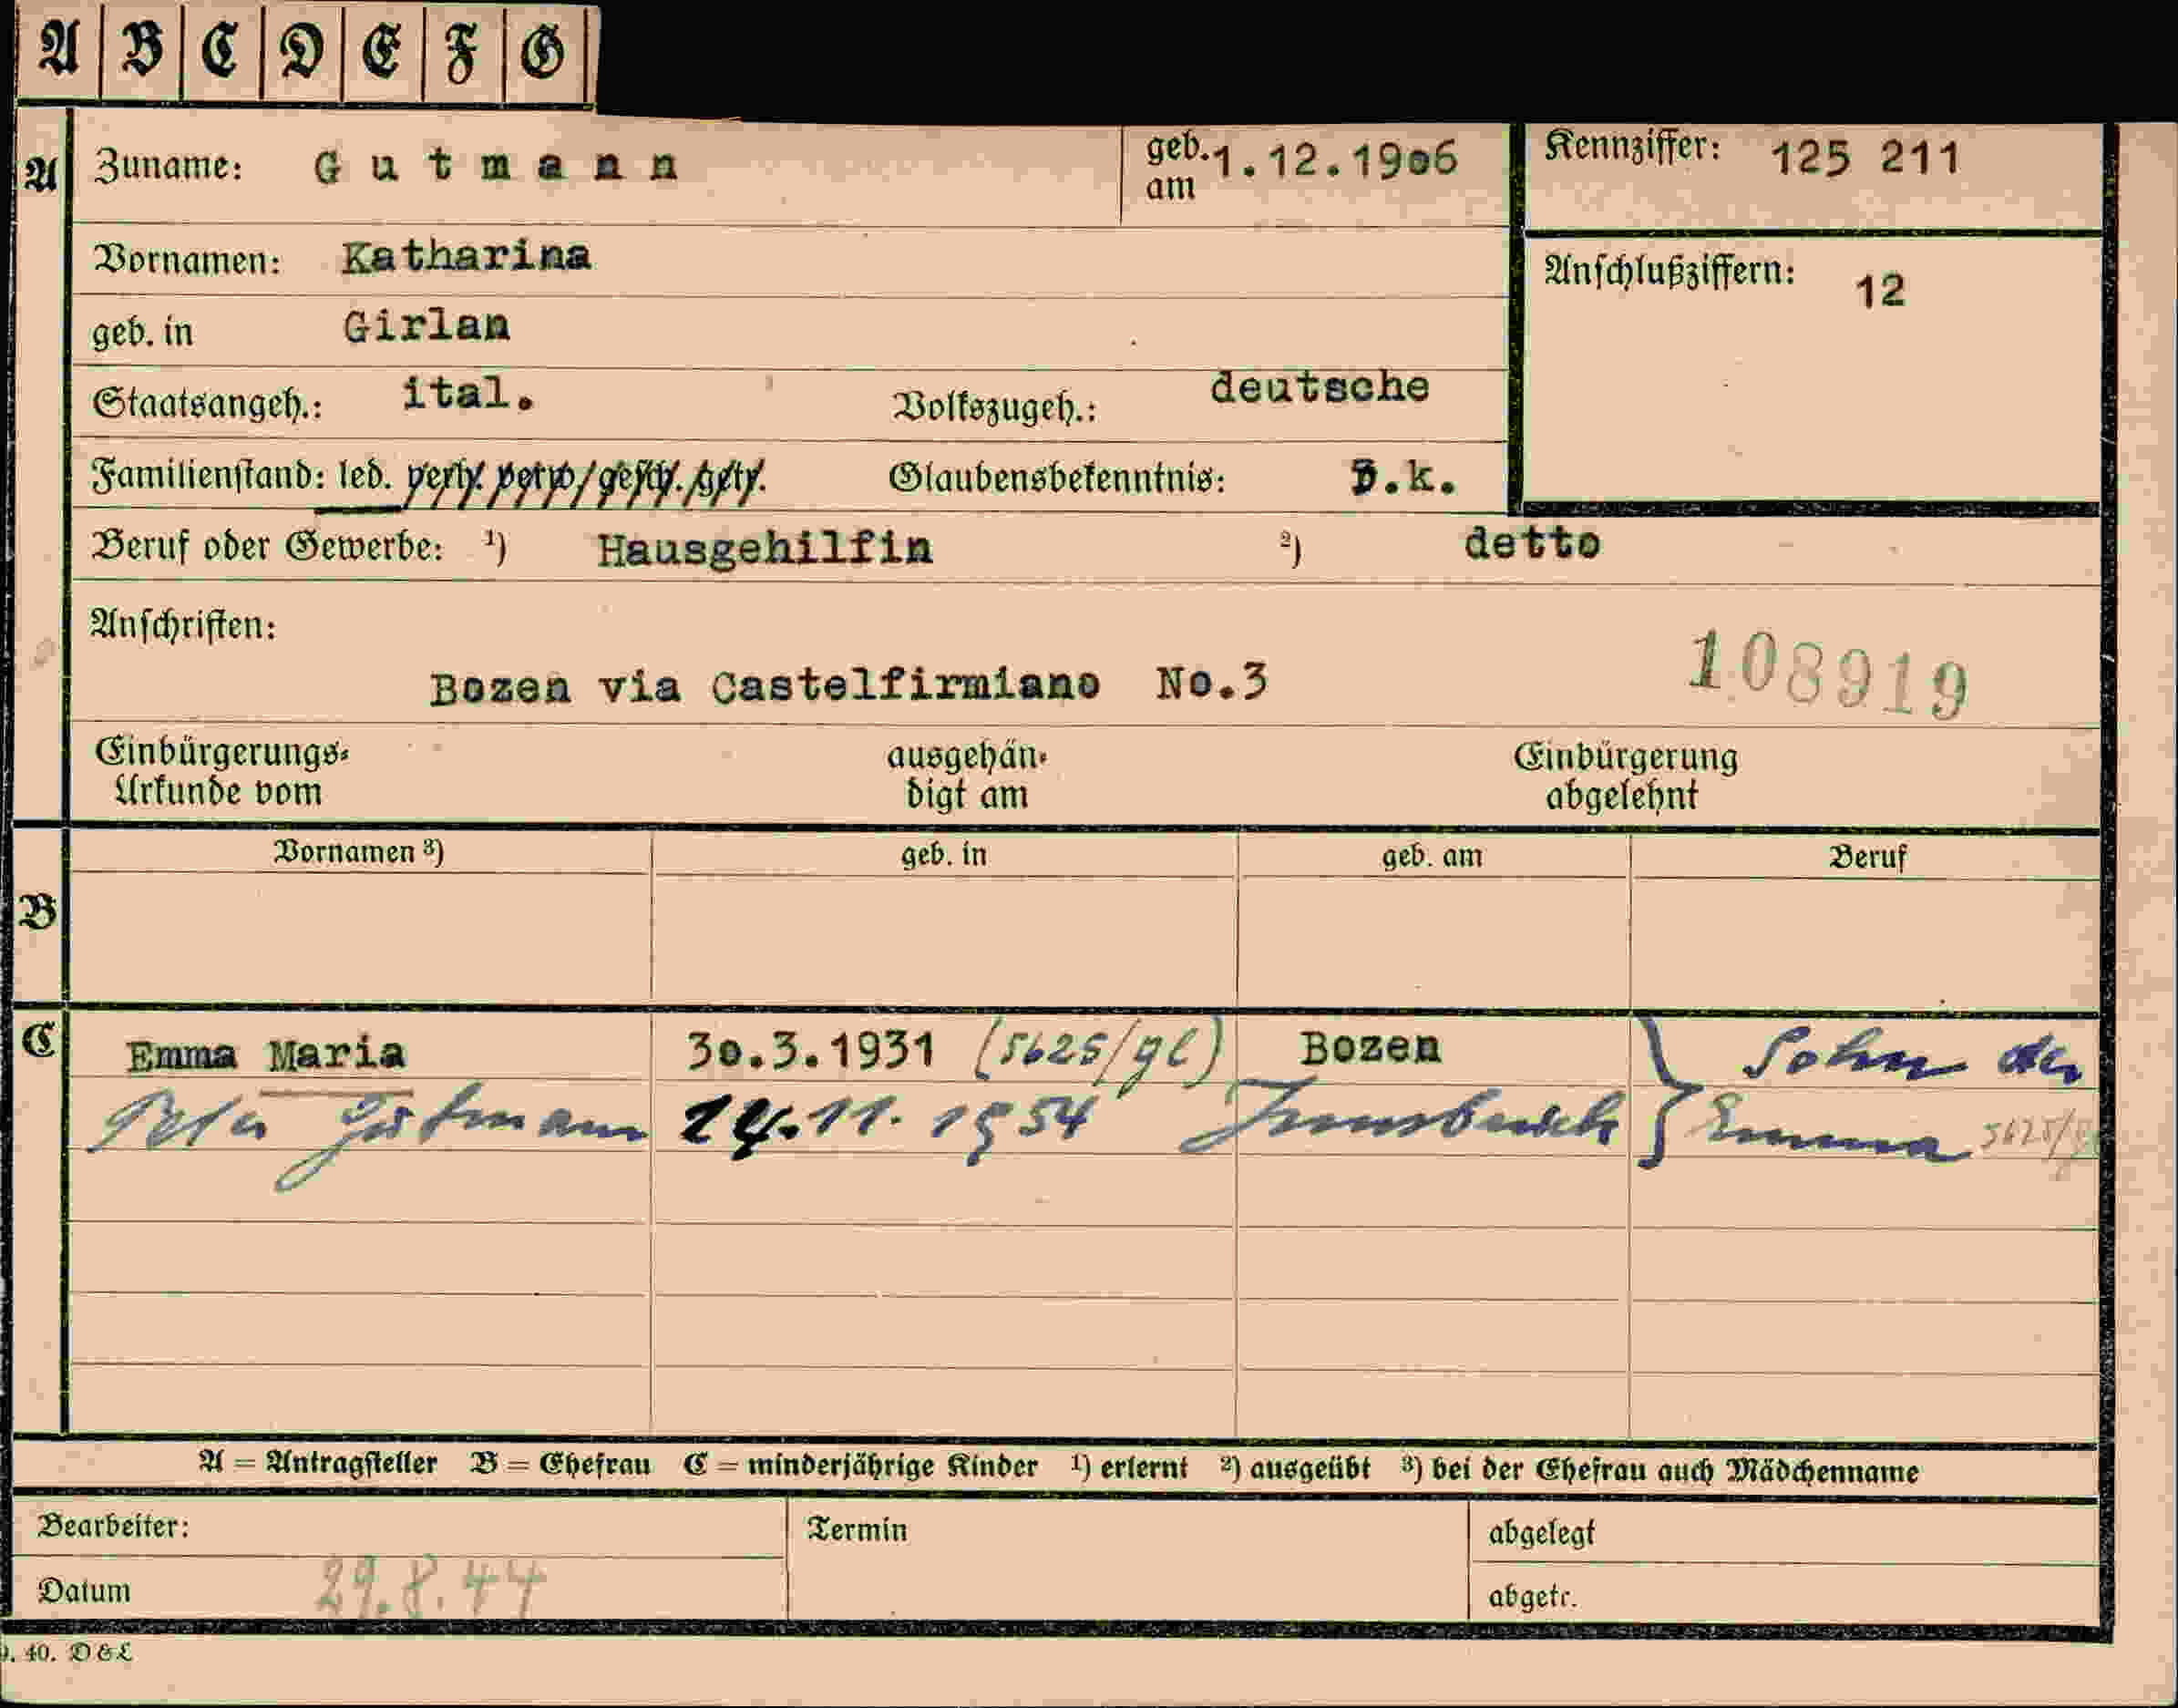 A B C D E F G
A Zuname: Gutmann geb. am 1.12.1906 Kennziffer: 125 211
Vornamen: Katharina Anschlußziffern: 12
geb. in Girlan
Staatsangeh.: ital. Volkszugeh.: deutsche
Familienstand: led. verh. verw. gesch. getr. Glaubensbekenntnis: k.
Beruf oder Gewerbe: ¹) Hausgehilfin ²) detto
Anschriften:
Bozen via Castelfirmiano No.3 108919
Einbürgerungs-Urkunde vom ausgehändigt am Einbürgerung abgelehnt
Vornamen ³) geb. in geb. am Beruf
B
C Emma Maria 30.3.1931 (5625/gl) Bozen } Sohn der
Peter Gutmann 24.11.1954 Innsbruck Emma 5625/
A = Antragsteller B = Ehefrau C = minderjährige Kinder ¹) erlernt ²) ausgeübt ³) bei der Ehefrau auch Mädchenname
Bearbeiter: Termin abgelegt
Datum 29.8.44 abgetr.
40. D&L